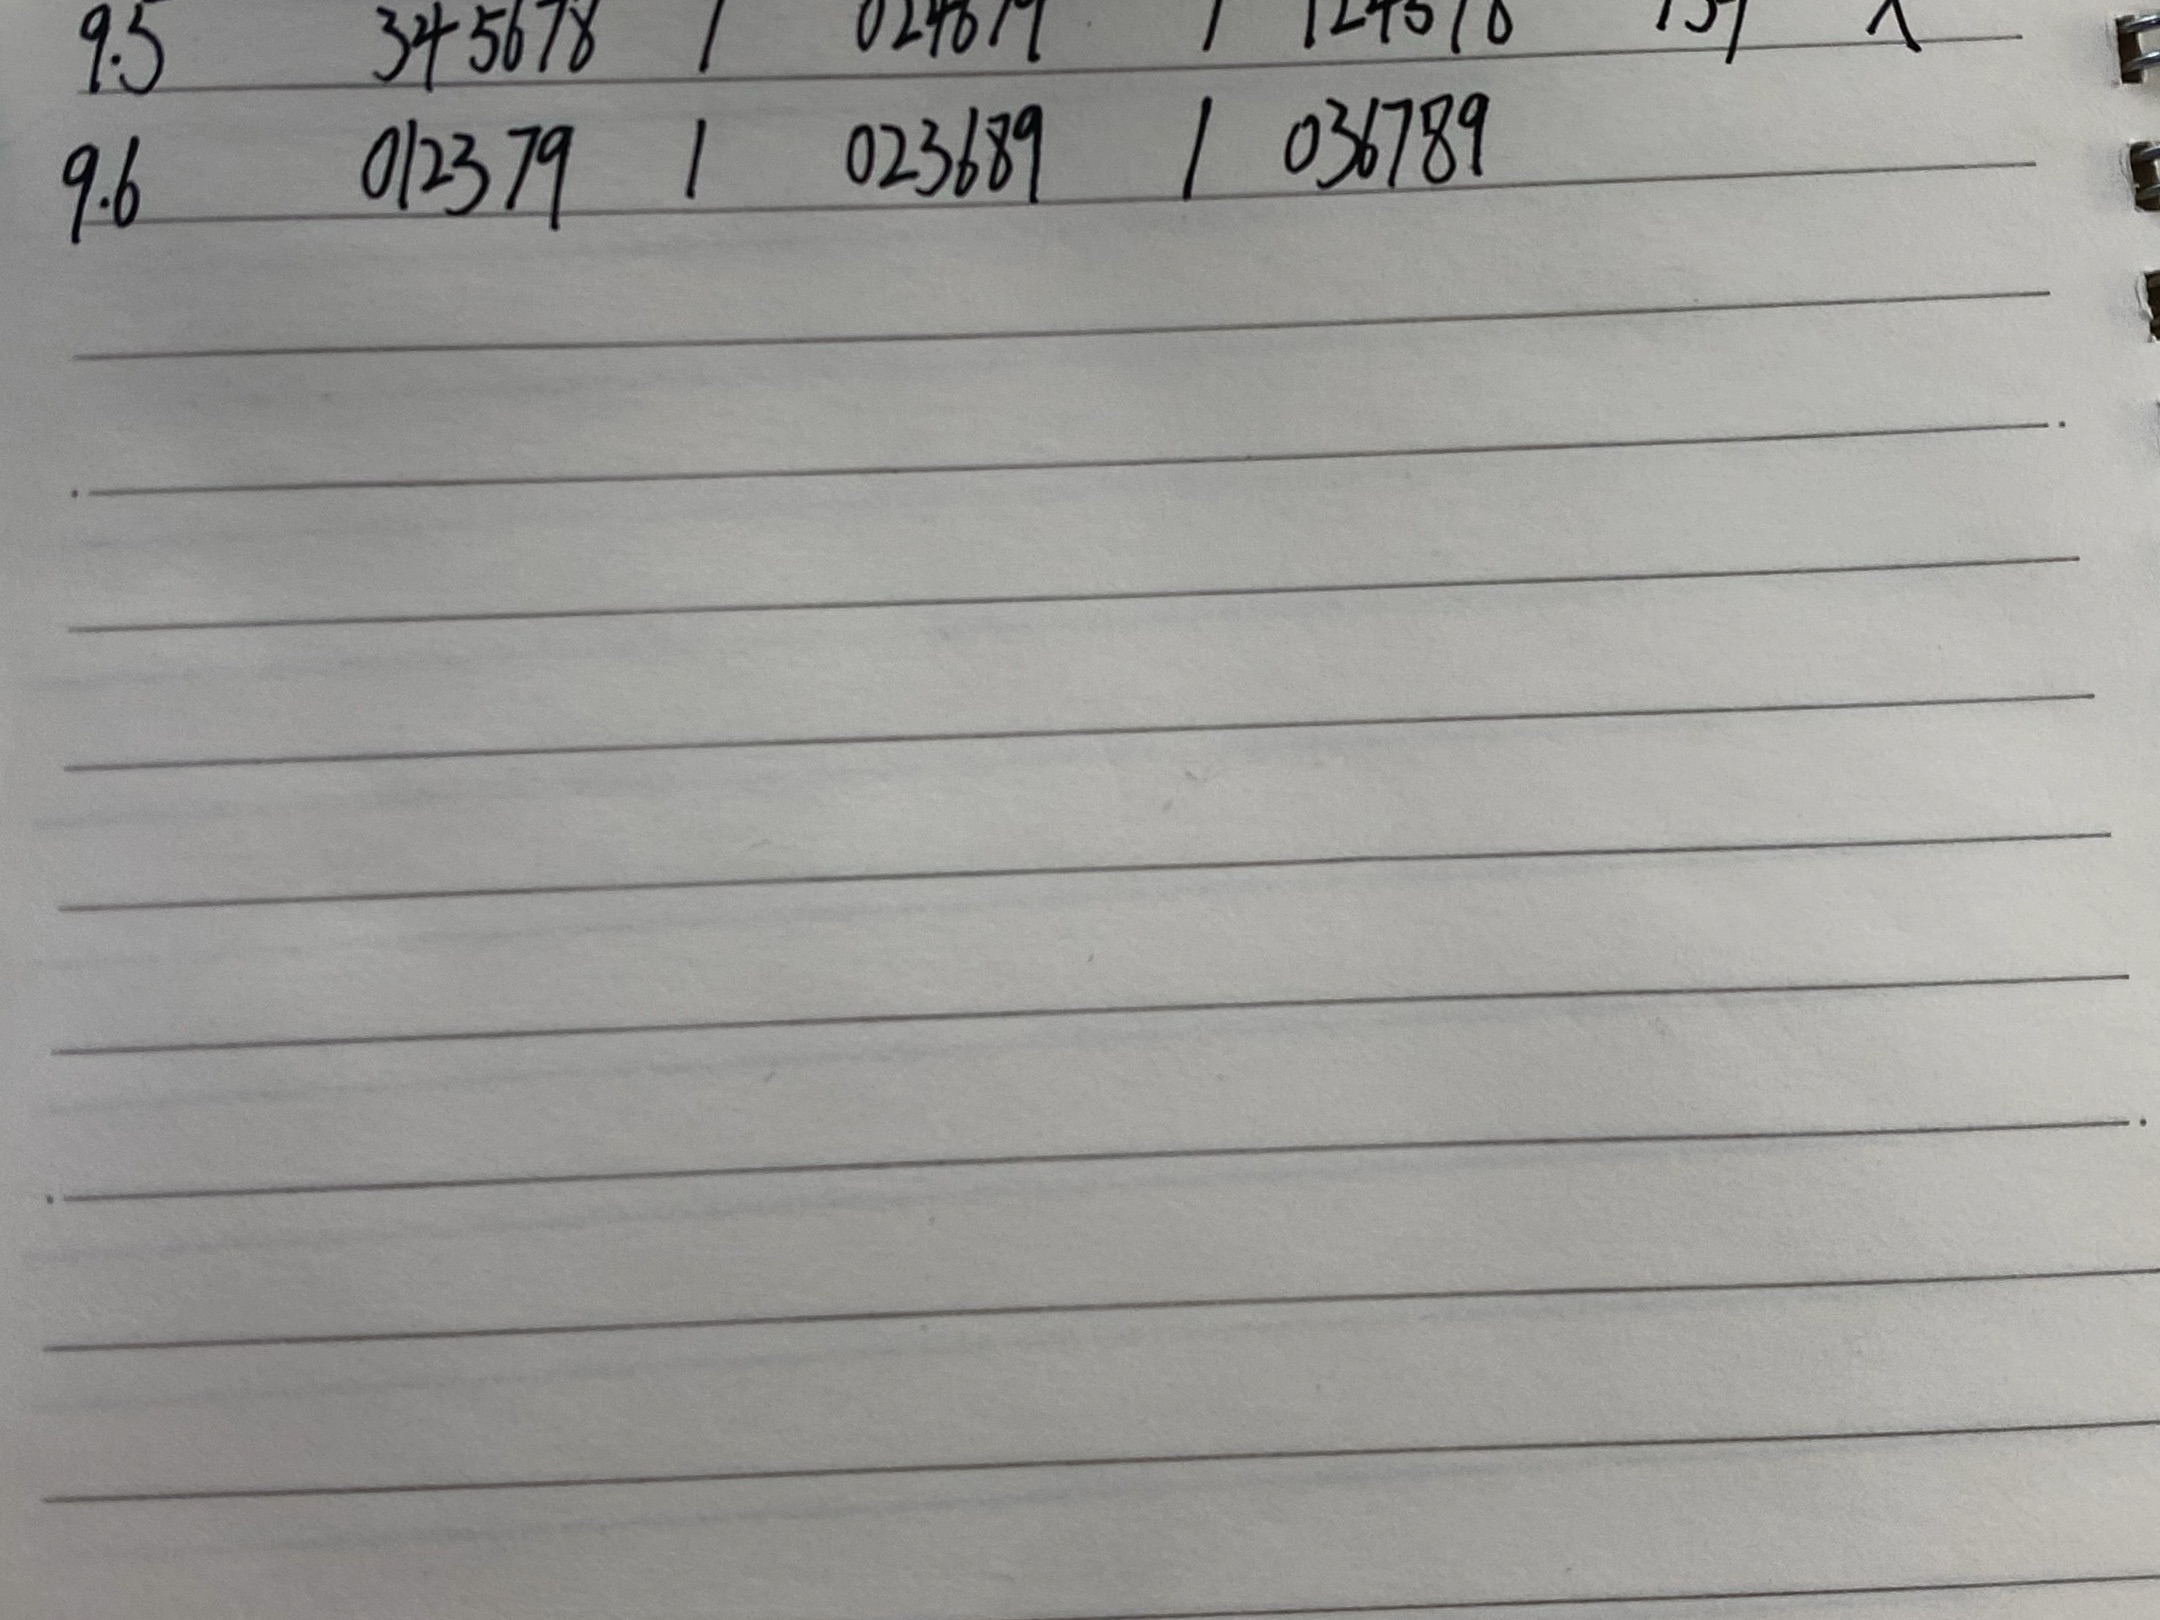 9.5 345678 | 024679 | 124578
9.6 012379 | 023689 | 036789